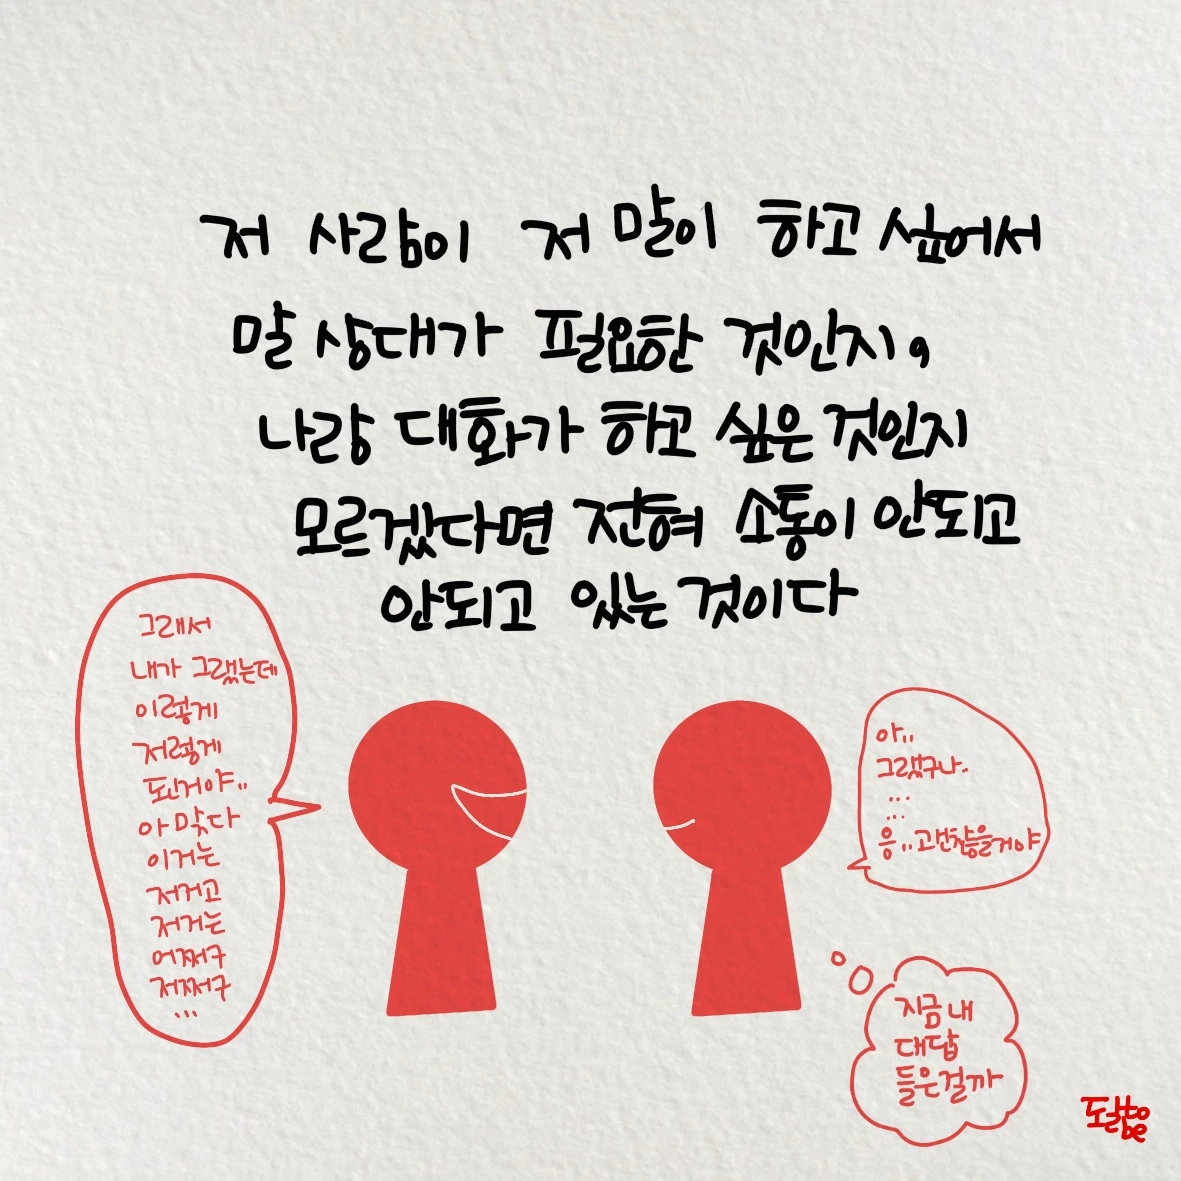 저 사람이 저 말이 하고 싶어서
말 상대가 필요한 것인지,
나랑 대화가 하고 싶은 것인지
모르겠다면 전혀 소통이 안되고
안되고 있는 것이다
그래서
내가 그랬는데
이렇게
저렇게
된거야..
아 맞다
이거는
저거고
저거는
어쩌구
저쩌구
...
아..
그랬구나..
...
...
응.. 괜찮을거야
지금 내
대답
들은걸까
to
be